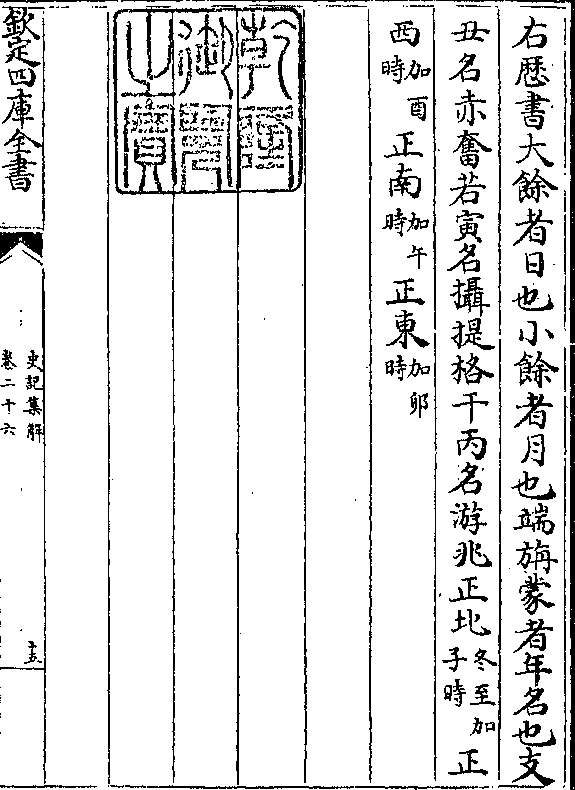 右歴書大餘者日也小餘者月也端旃蒙者年名也支
丑名赤奮若寅名攝提格干丙名游兆正北冬至加子時正
西加酉時正南加午時正東加卯時
乾隆
御覽
之寶
欽定四庫全書
史記集解
卷二十六
十五